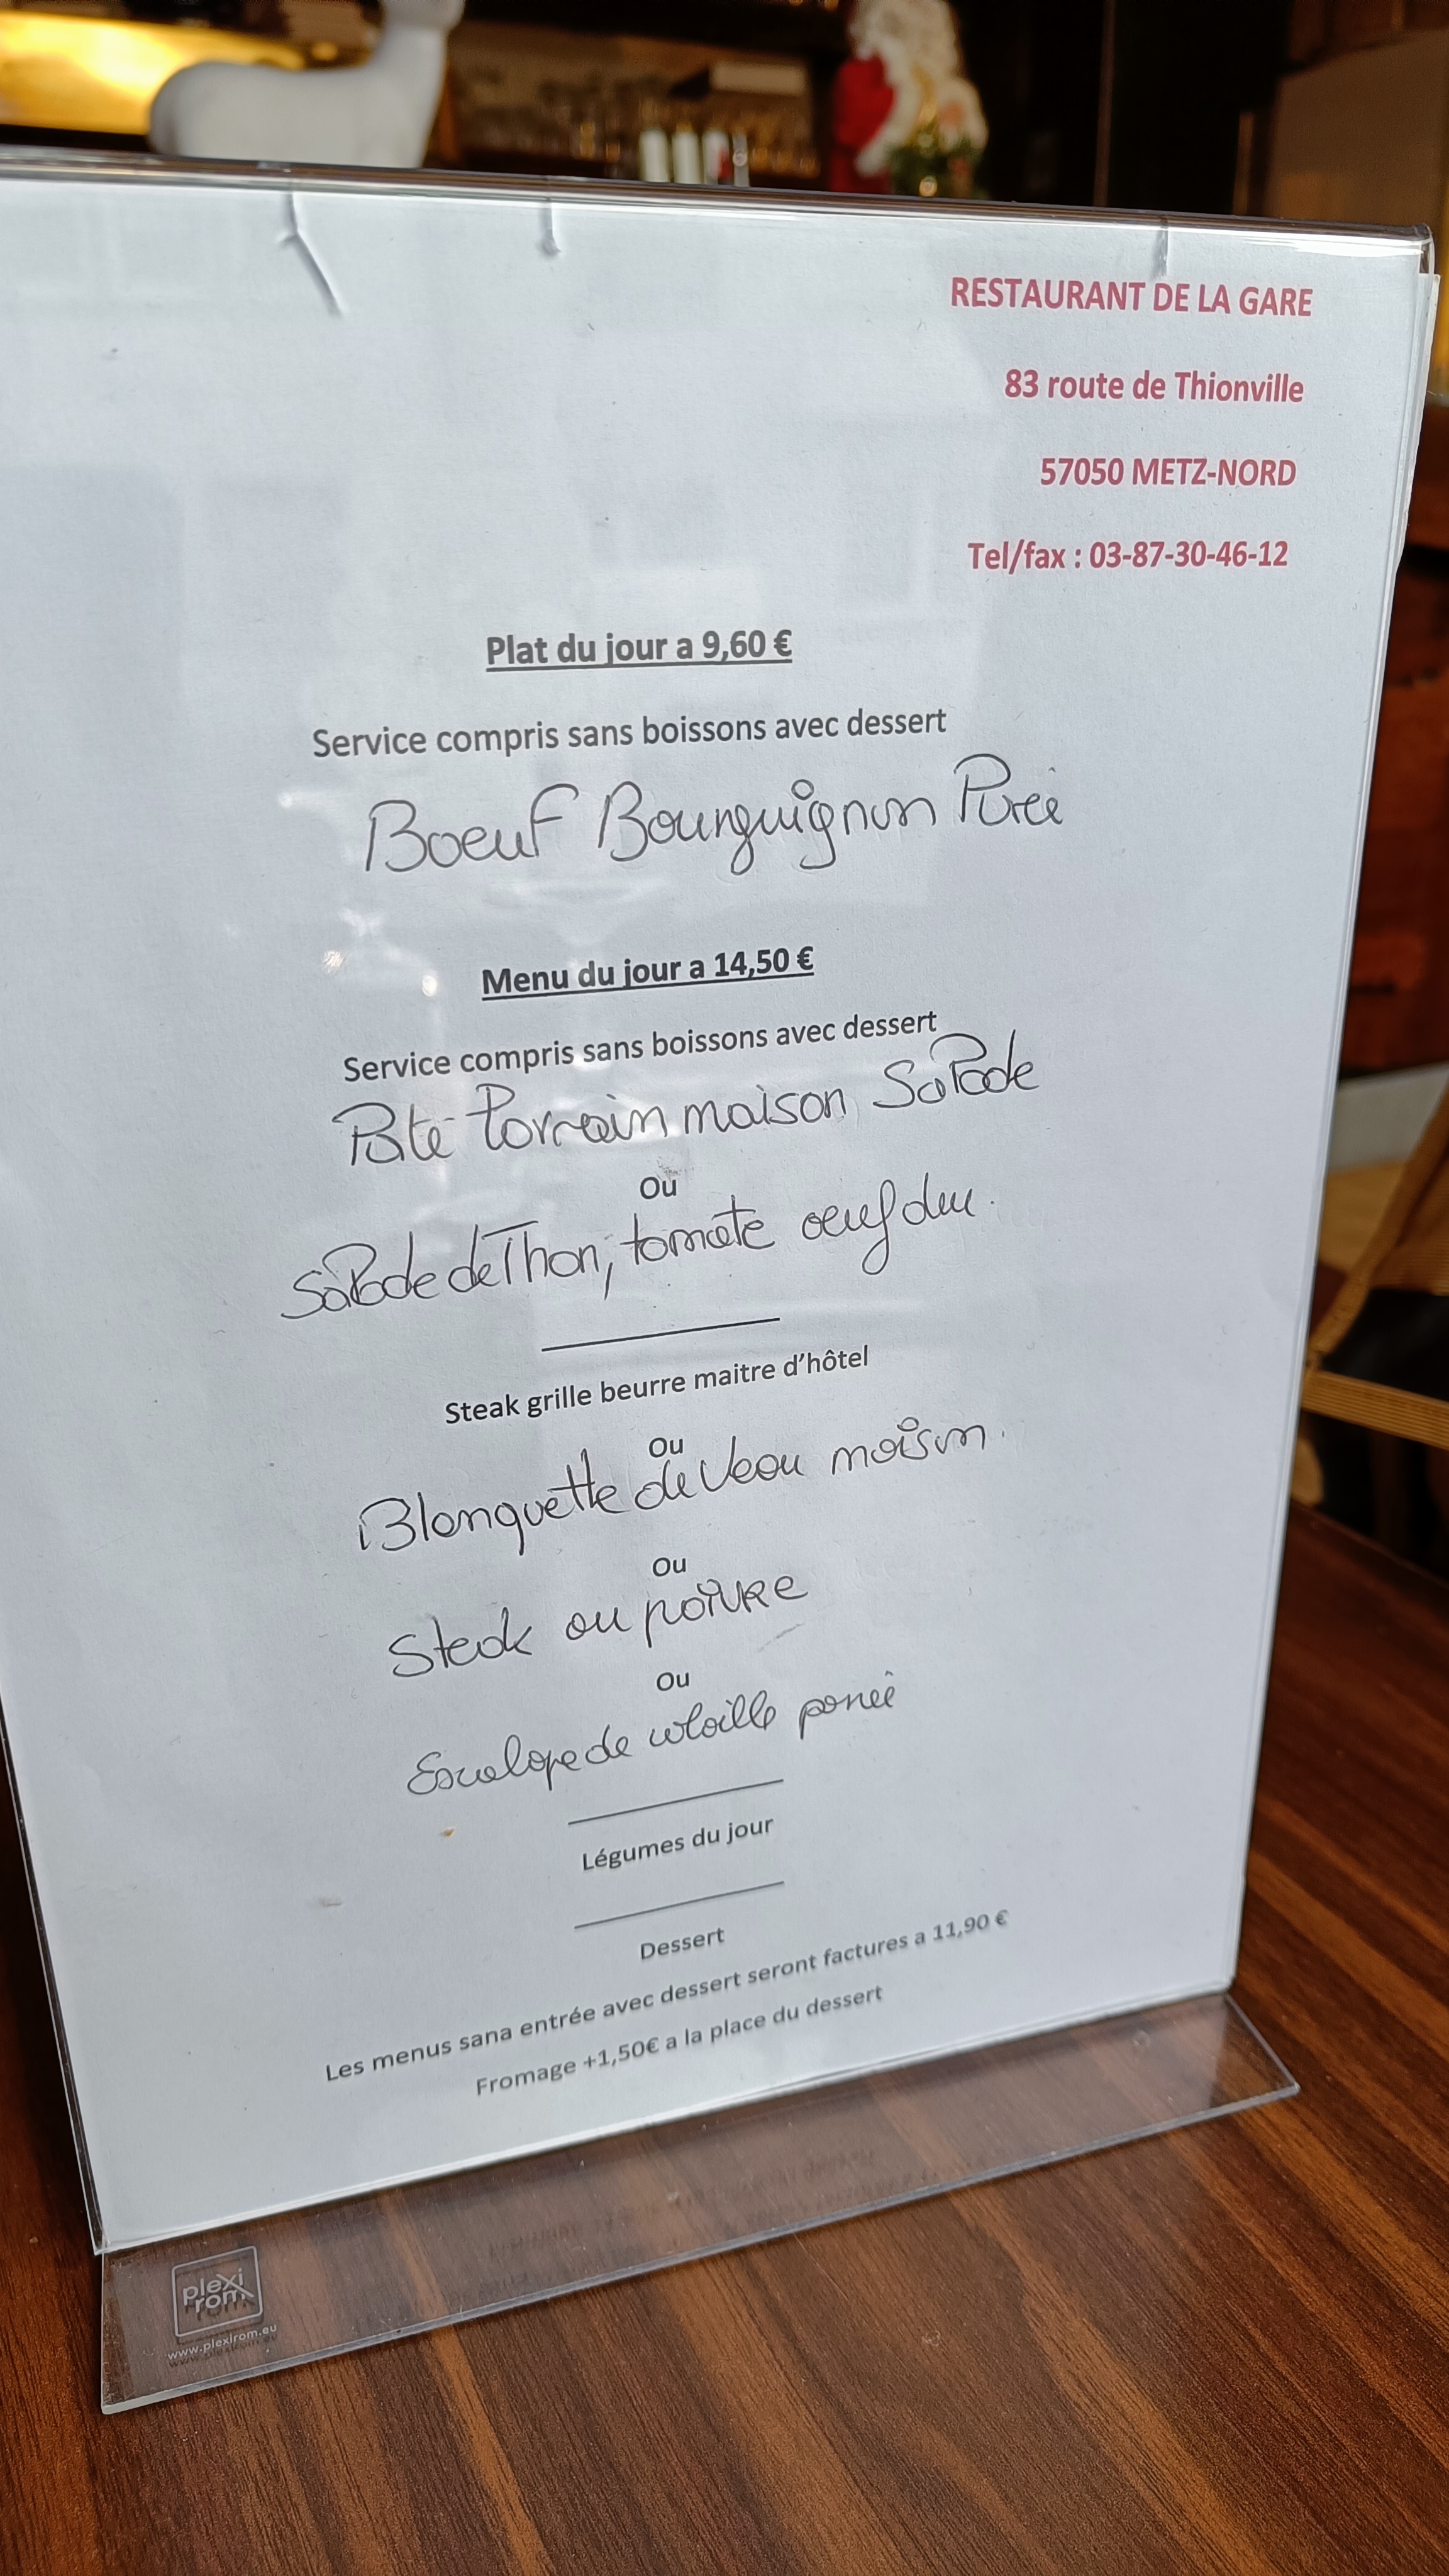 RESTAURANT DE LA GARE
83 route de Thionville
57050 METZ-NORD
Tel/fax : 03-87-30-46-12
Plat du jour a 9,60 €
Service compris sans boissons avec dessert
Boeuf Bourguignon Purée
Menu du jour a 14,50 €
Service compris sans boissons avec dessert
Pâté Lorrain maison Salade
Ou
Salade de Thon, tomate oeuf dur.
Steak grille beurre maitre d’hôtel
Ou
Blanquette de Veau maison.
Ou
Steak au poivre
Ou
Escalope de volaille panée
Légumes du jour
Dessert
Les menus sana entrée avec dessert seront factures a 11,90 €
Fromage +1,50€ a la place du dessert
plexi
rom
www.plexirom.eu